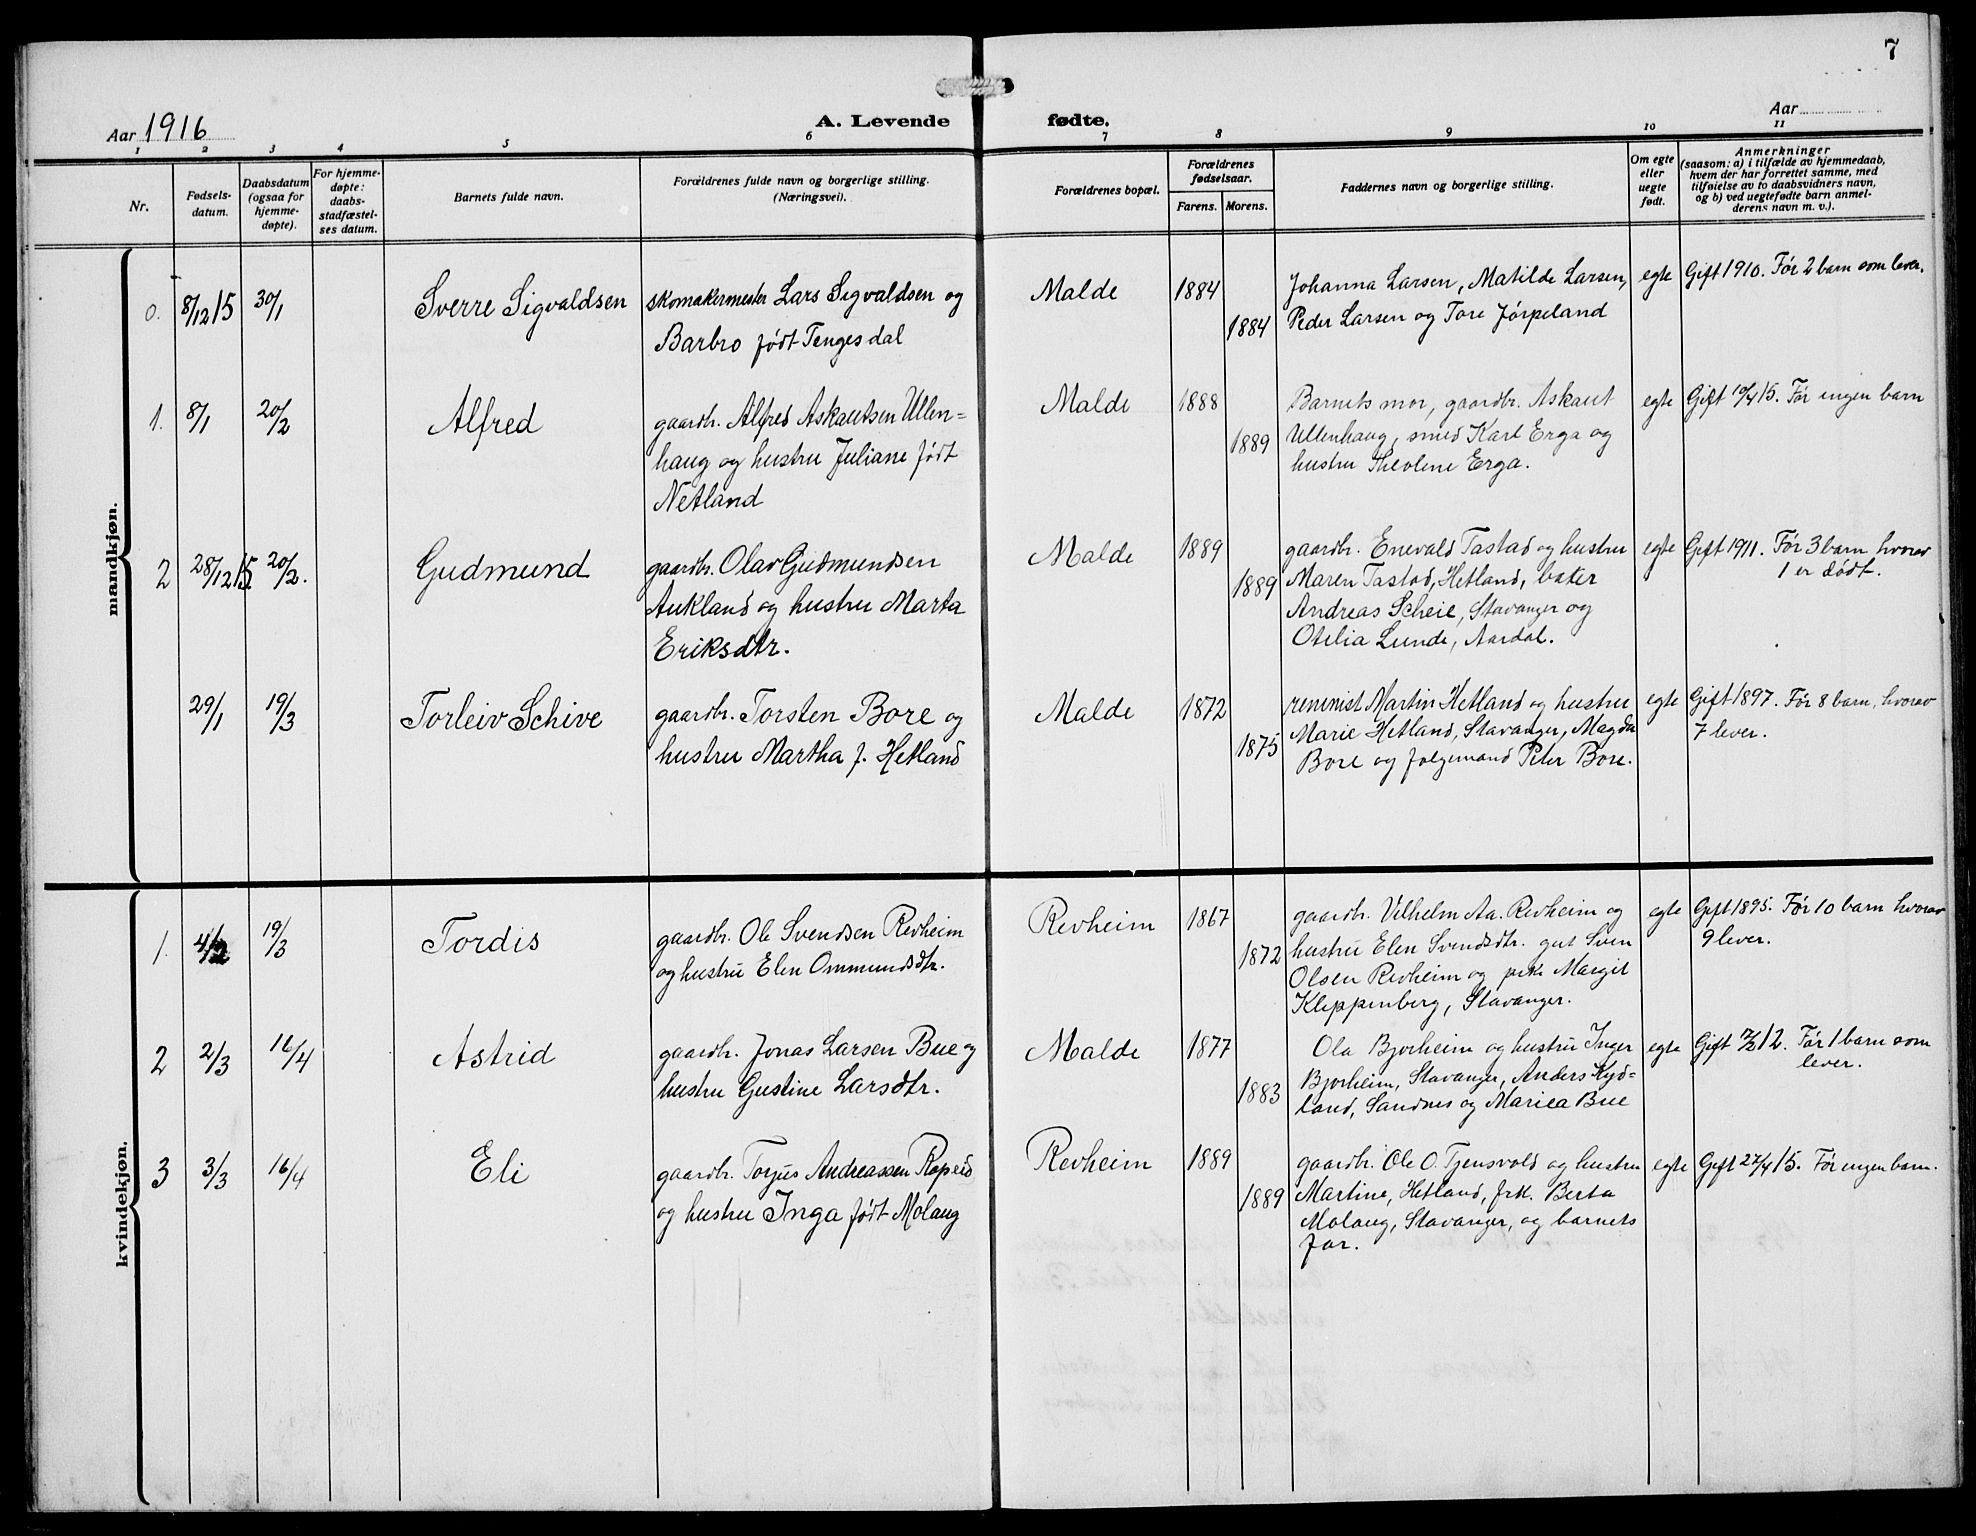 7
Aar 1916
A. Levende fødte.
Aar
1 2 3 4 5 6 7 8 9 10 11
Nr.
Fødsels-
datum.
Daabsdatum
(ogsaa for
hjemme-
døpte).
For hjemme-
døpte:
daabs-
stadfæstel-
ses datum.
Barnets fulde navn.
Forældrenes fulde navn og borgerlige stilling.
(Næringsvei).
Forældrenes bopæl.
Forældrenes
fødselsaar.
Farens. Morens.
Faddernes navn og borgerlige stilling.
Om egte
eller
uegte
født.
Anmerkninger
(saasom: a) i tilfælde av hjemmedaab,
hvem der har forrettet samme, med
tilføielse av to daabsvidners navn,
og b) ved uegtefødte barn anmel-
derens navn m. v.).
mandkjøn.
0. 8/12 15 30/1 Sverre Sigvaldsen
skomakermester Lars Sigvaldsen og
Barbro født Tengesdal
Malde 1884 1884
Johanna Larsen, Matilde Larsen,
Peder Larsen og Tore Jørpeland
egte Gift 1910. Før 2 barn som lever.
1. 8/1 20/2 Alfred
gaardbr. Alfred Askautsen Ullen-
haug og hustru Juliane født
Netland
Malde 1888 1889
Barnets mor, gaardbr. Askaut
Ullenhaug, smed Karl Erga og
hustru Theoline Erga.
egte Gift 10/4 15. Før ingen barn
2 28/12 15 20/2. Gudmund
gaardbr. Olav Gudmundsen
Aukland og hustru Marta
Eriksdtr.
Malde 1889 1889
gaardbr. Enevald Tastad og hustru
Maren Tastad, Hetland, baker
Andreas Scheie, Stavanger og
Otilia Lunde, Aardal.
egte Gift 1911. Før 3 barn hvorav
1 er dødt.
29/1 19/3 Torleiv Schive
gaardbr. Torsten Bore og
hustru Martha f. Hetland
Malde 1872 1875
Martin Hetland og hustru
Marie Hetland, Stavanger, Magda
Bore og følgemand Peter Bore.
egte Gift 1897. Før 8 barn, hvorav
7 lever.
kvindekjøn.
1. 4/2 19/3 Tordis
gaardbr. Ole Svendsen Revheim
og hustru Elen Ommundsdtr.
Revheim 1867 1872
gaardbr. Vilhelm Aa. Revheim og
hustru Elen Svendsdtr. gut Sven
Olsen Revheim og frk. Margit
Kleppenberg, Stavanger.
egte Gift 1895. Før 10 barn hvorav
9 lever.
2 2/3 16/4 Astrid
gaardbr. Jonas Larsen Bue og
hustru Gustine Larsdtr.
Malde 1877 1883
Ola Bjorheim og hustru Inger
Bjorheim, Stavanger, Anders Kyd-
land, Sandnes og Mariea Bue
egte Gift 12. Før 1 barn som
lever.
3 3/3 16/4 Eli
gaardbr. Torjus Andreassen Ropeid
og hustru Inga født Molaug
Revheim 1889 1889
gaardbr. Ole O. Tjensvold og hustru
Martine, Hetland, frk. Berta
Molaug, Stavanger, og barnets
far.
egte Gift 27/4 15. Før ingen barn.